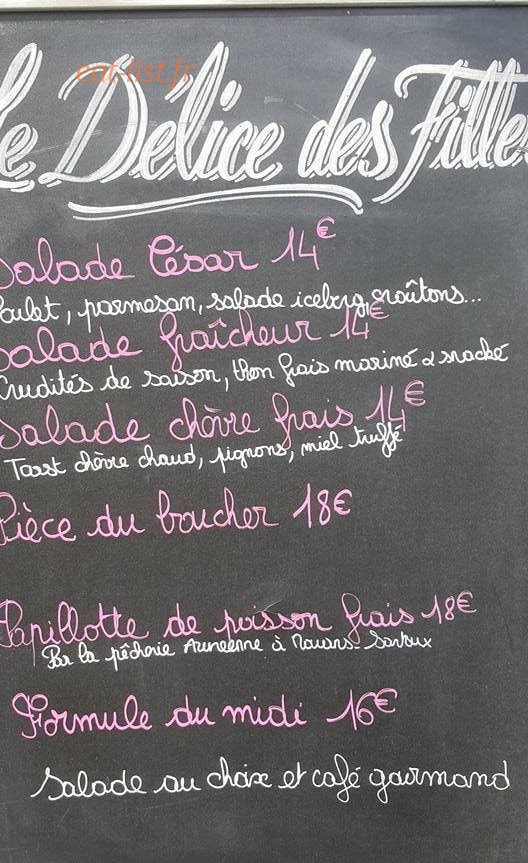 eat-list.fr
Le Délice des Filles
Salade César 14€
Poulet, parmesan, salade iceberg, croûtons...
Salade fraîcheur 14€
Crudités de saison, thon frais mariné & snacké
Salade chèvre frais 14€
Toast chèvre chaud, pignons, miel truffé
Pièce du boucher 18€
Papillotte de poisson frais 18€
Par la pêcherie à
Formule du midi 16€
Salade au choix et café gourmand